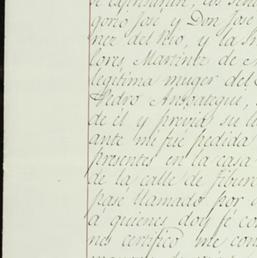 gorio José y Don José
nez del Rio, y la Sra
lores Martinez de A
legitima muger del
Pedro Ansoategui,
de él y previa su li
ante mi fué pedida
presentes en la casa
de la calle de Tibur
pasé llamado por
á quienes doy fé con
nes certifico me con